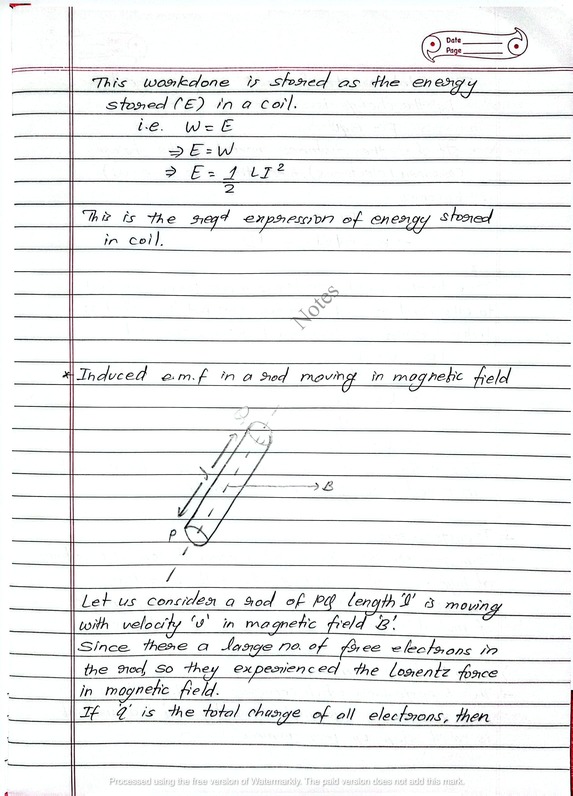 Date
Page
This workdone is stored as the energy
stored (E) in a coil.
i.e. W = E
⇒ E = W
⇒ E = 1/2 LI²
This is the reqd expression of energy stored
in coil.
Notes
* Induced e.m.f in a rod moving in magnetic field
Q
l
B
P
Let us consider a rod of PQ length 'l' is moving
with velocity 'v' in magnetic field 'B'.
Since there a large no. of free electrons in
the rod, so they experienced the Lorentz force
in magnetic field.
If 'q' is the total charge of all electrons, then
Processed using the free version of Watermarkly. The paid version does not add this mark.